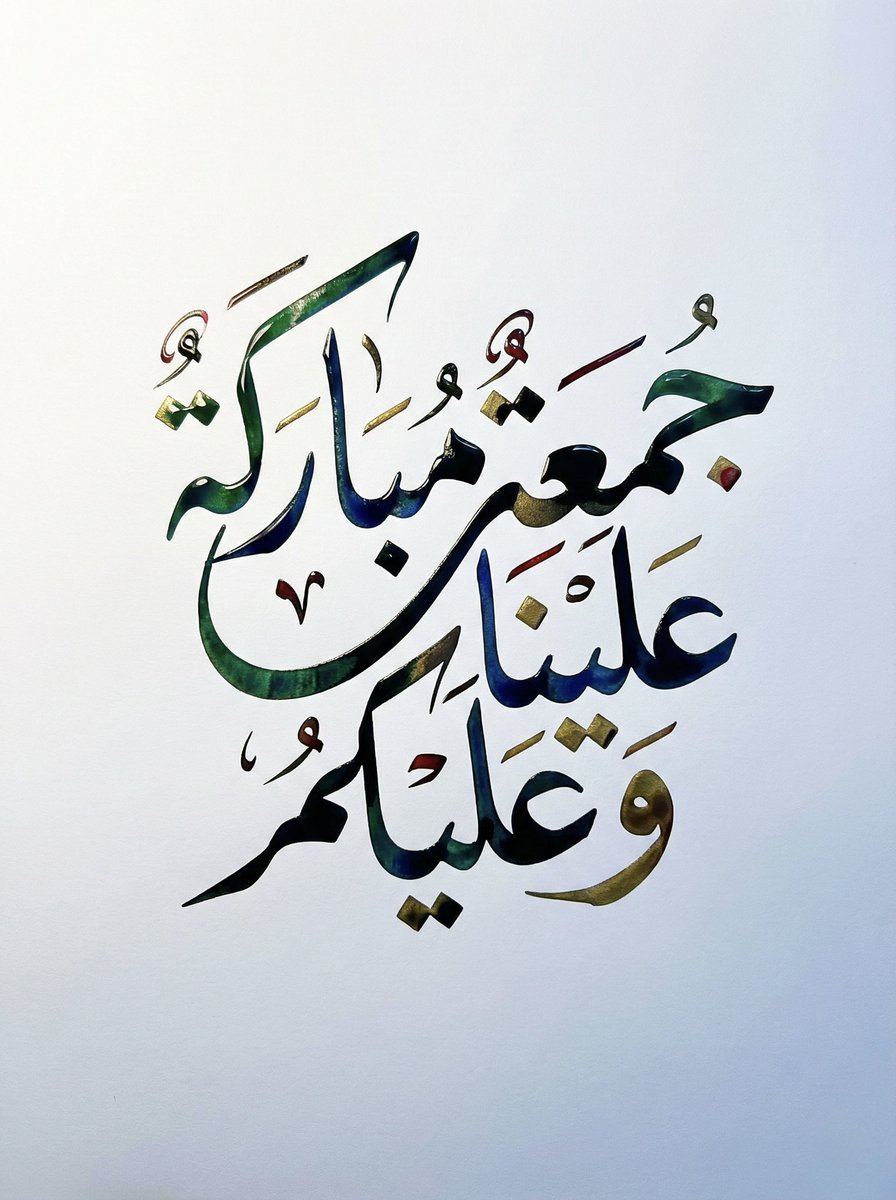 جُمَعَتٌ مُبَارَكَةٌ
عَلَيْنَا
وَعَلَيْكُمْ